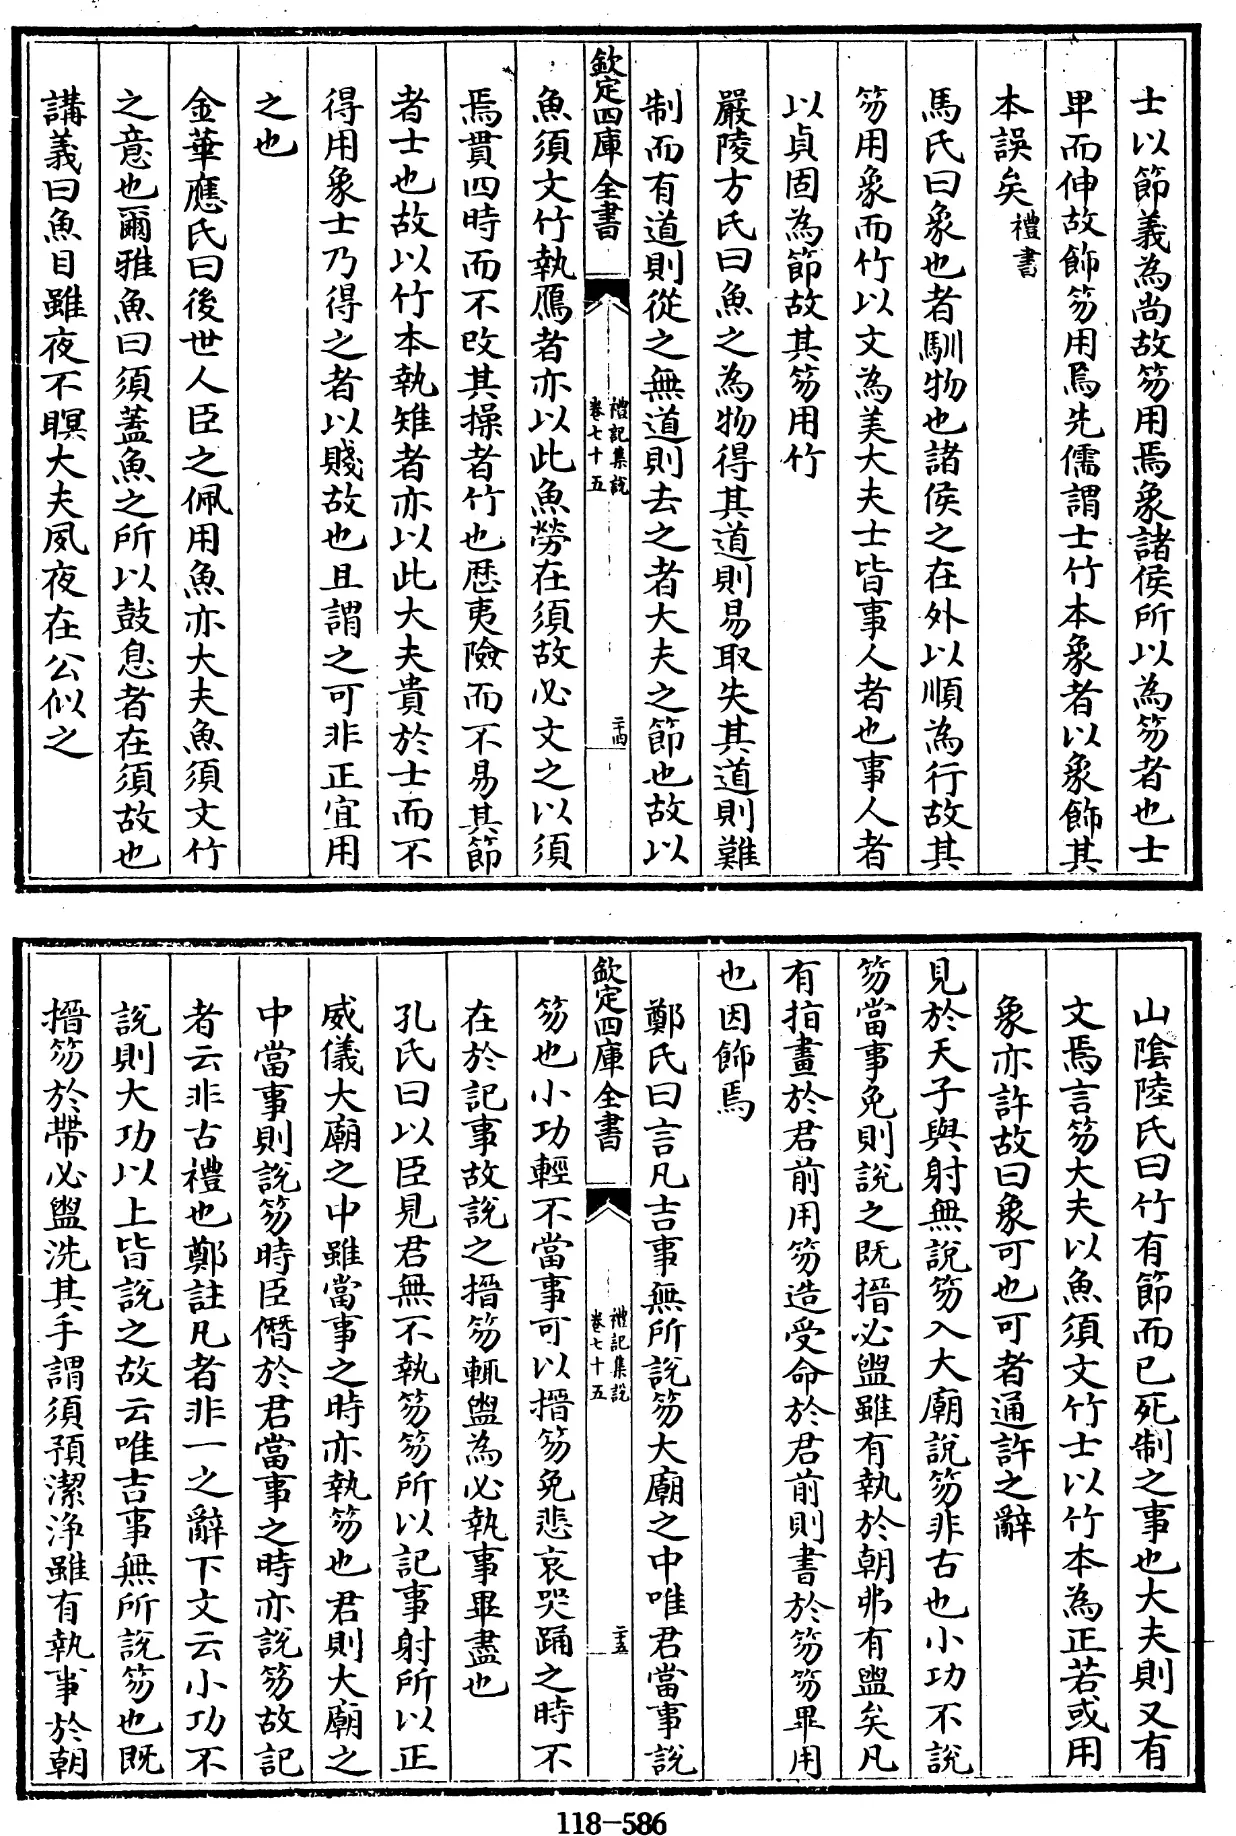 士以節義為尚故笏用焉象諸侯所以為笏者也士
卑而伸故飾笏用焉先儒謂士竹本象者以象飾其
本誤矣禮書
馬氏曰象也者馴物也諸侯之在外以順為行故其
笏用象而竹以文為美大夫士皆事人者也事人者
以貞固為節故其笏用竹
嚴陵方氏曰魚之為物得其道則易取失其道則難
制而有道則從之無道則去之者大夫之節也故以
欽定四庫全書
禮記集說
卷七十五
二十四
魚須文竹執鴈者亦以此魚勞在須故必文之以須
焉貫四時而不改其操者竹也歷夷險而不易其節
者士也故以竹本執雉者亦以此大夫貴於士而不
得用象士乃得之者以賤故也且謂之可非正宜用
之也
金華應氏曰後世人臣之佩用魚亦大夫魚須文竹
之意也爾雅魚曰須蓋魚之所以鼓息者在須故也
講義曰魚目雖夜不瞑大夫夙夜在公似之
山陰陸氏曰竹有節而已死制之事也大夫則又有
文焉言笏大夫以魚須文竹士以竹本為正若或用
象亦許故曰象可也可者通許之辭
見於天子與射無說笏入大廟說笏非古也小功不說
笏當事免則說之既搢必盥雖有執於朝弗有盥矣凡
有指畫於君前用笏造受命於君前則書於笏笏畢用
也因飾焉
鄭氏曰言凡吉事無所說笏大廟之中唯君當事說
欽定四庫全書
禮記集說
卷七十五
二十五
笏也小功輕不當事可以搢笏免悲哀哭踊之時不
在於記事故說之搢笏輒盥為必執事畢盡也
孔氏曰以臣見君無不執笏笏所以記事射所以正
威儀大廟之中雖當事之時亦執笏也君則大廟之
中當事則說笏時臣僭於君當事之時亦說笏故記
者云非古禮也鄭註凡者非一之辭下文云小功不
說則大功以上皆說之故云唯吉事無所說笏也既
搢笏於帶必盥洗其手謂須預潔淨雖有執事於朝
118-586